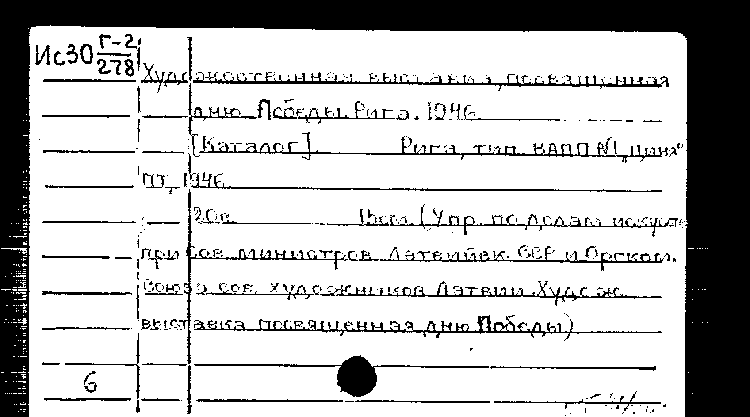 Ис30 Г-2
278
Художественная выставка, посвященная
дню Победы. Рига. 1946.
[Каталог]. Рига, тип. ВАПП №1 „Циня"
ПТ, 1946.
20с. 15см. (Упр. по делам искусств
при Сов. министров Латвийск. ССР и Оргком.
Союза сов. художников Латвии. Худож.
выставка посвященная дню Победы)
6